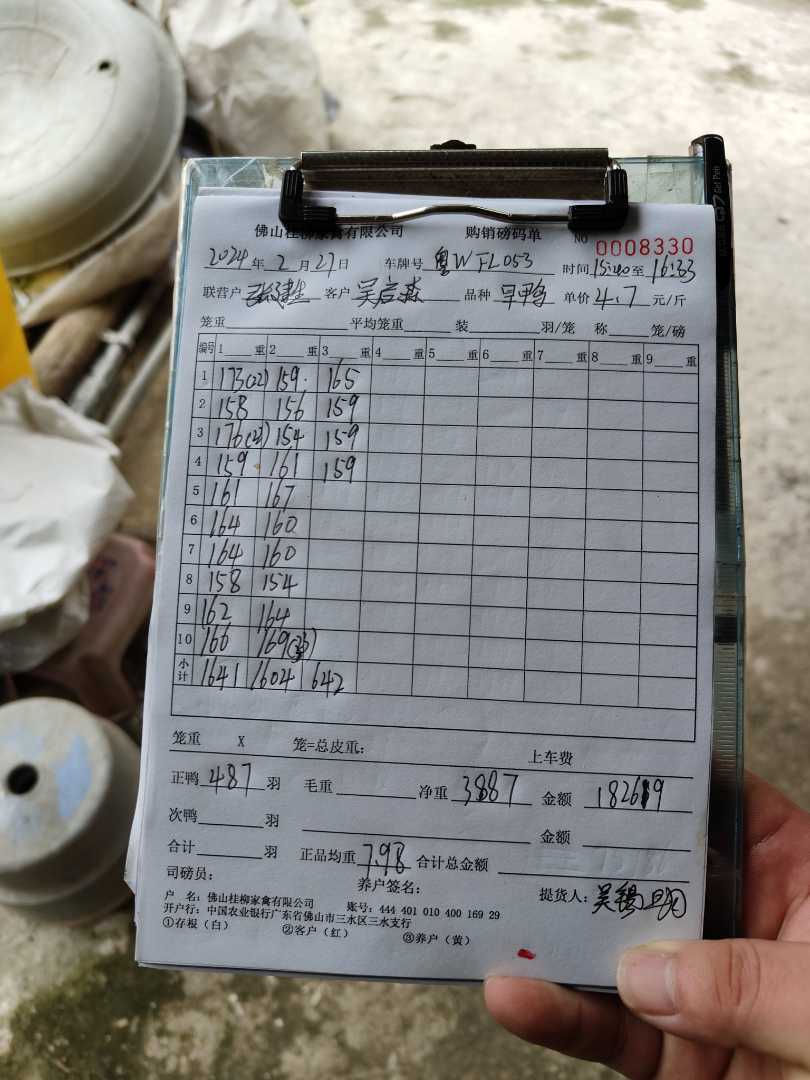 佛山桂柳家禽有限公司 购销磅码单 NO 0008330
2024年 2月27日 车牌号 粤WFL053 时间15:40至16:33
联营户 客户 吴启森 品种 旱鸭 单价4.7元/斤
笼重 平均笼重 装 羽/笼 称 笼/磅
编号 1 重 2 重 3 重 4 重 5 重 6 重 7 重 8 重 9 重
1 173(22) 159. 165
2 158 156 159
3 176(23) 154 159
4 159 161 159
5 161 167
6 164 160
7 164 160
8 158 154
9 162 164
10 166 169
小计 1641 1604 642
笼重 X 笼=总皮重: 上车费
正鸭487羽 毛重 净重3887 金额 182619
次鸭 羽 金额
合计 羽 正品均重7.98 合计总金额
司磅员: 养户签名: 提货人:吴锡
户 名:佛山桂柳家禽有限公司 账号:444 401 010 400 169 29
开户行:中国农业银行广东省佛山市三水区三水支行
①存根(白) ②客户(红) ③养户(黄)
Gel Pen